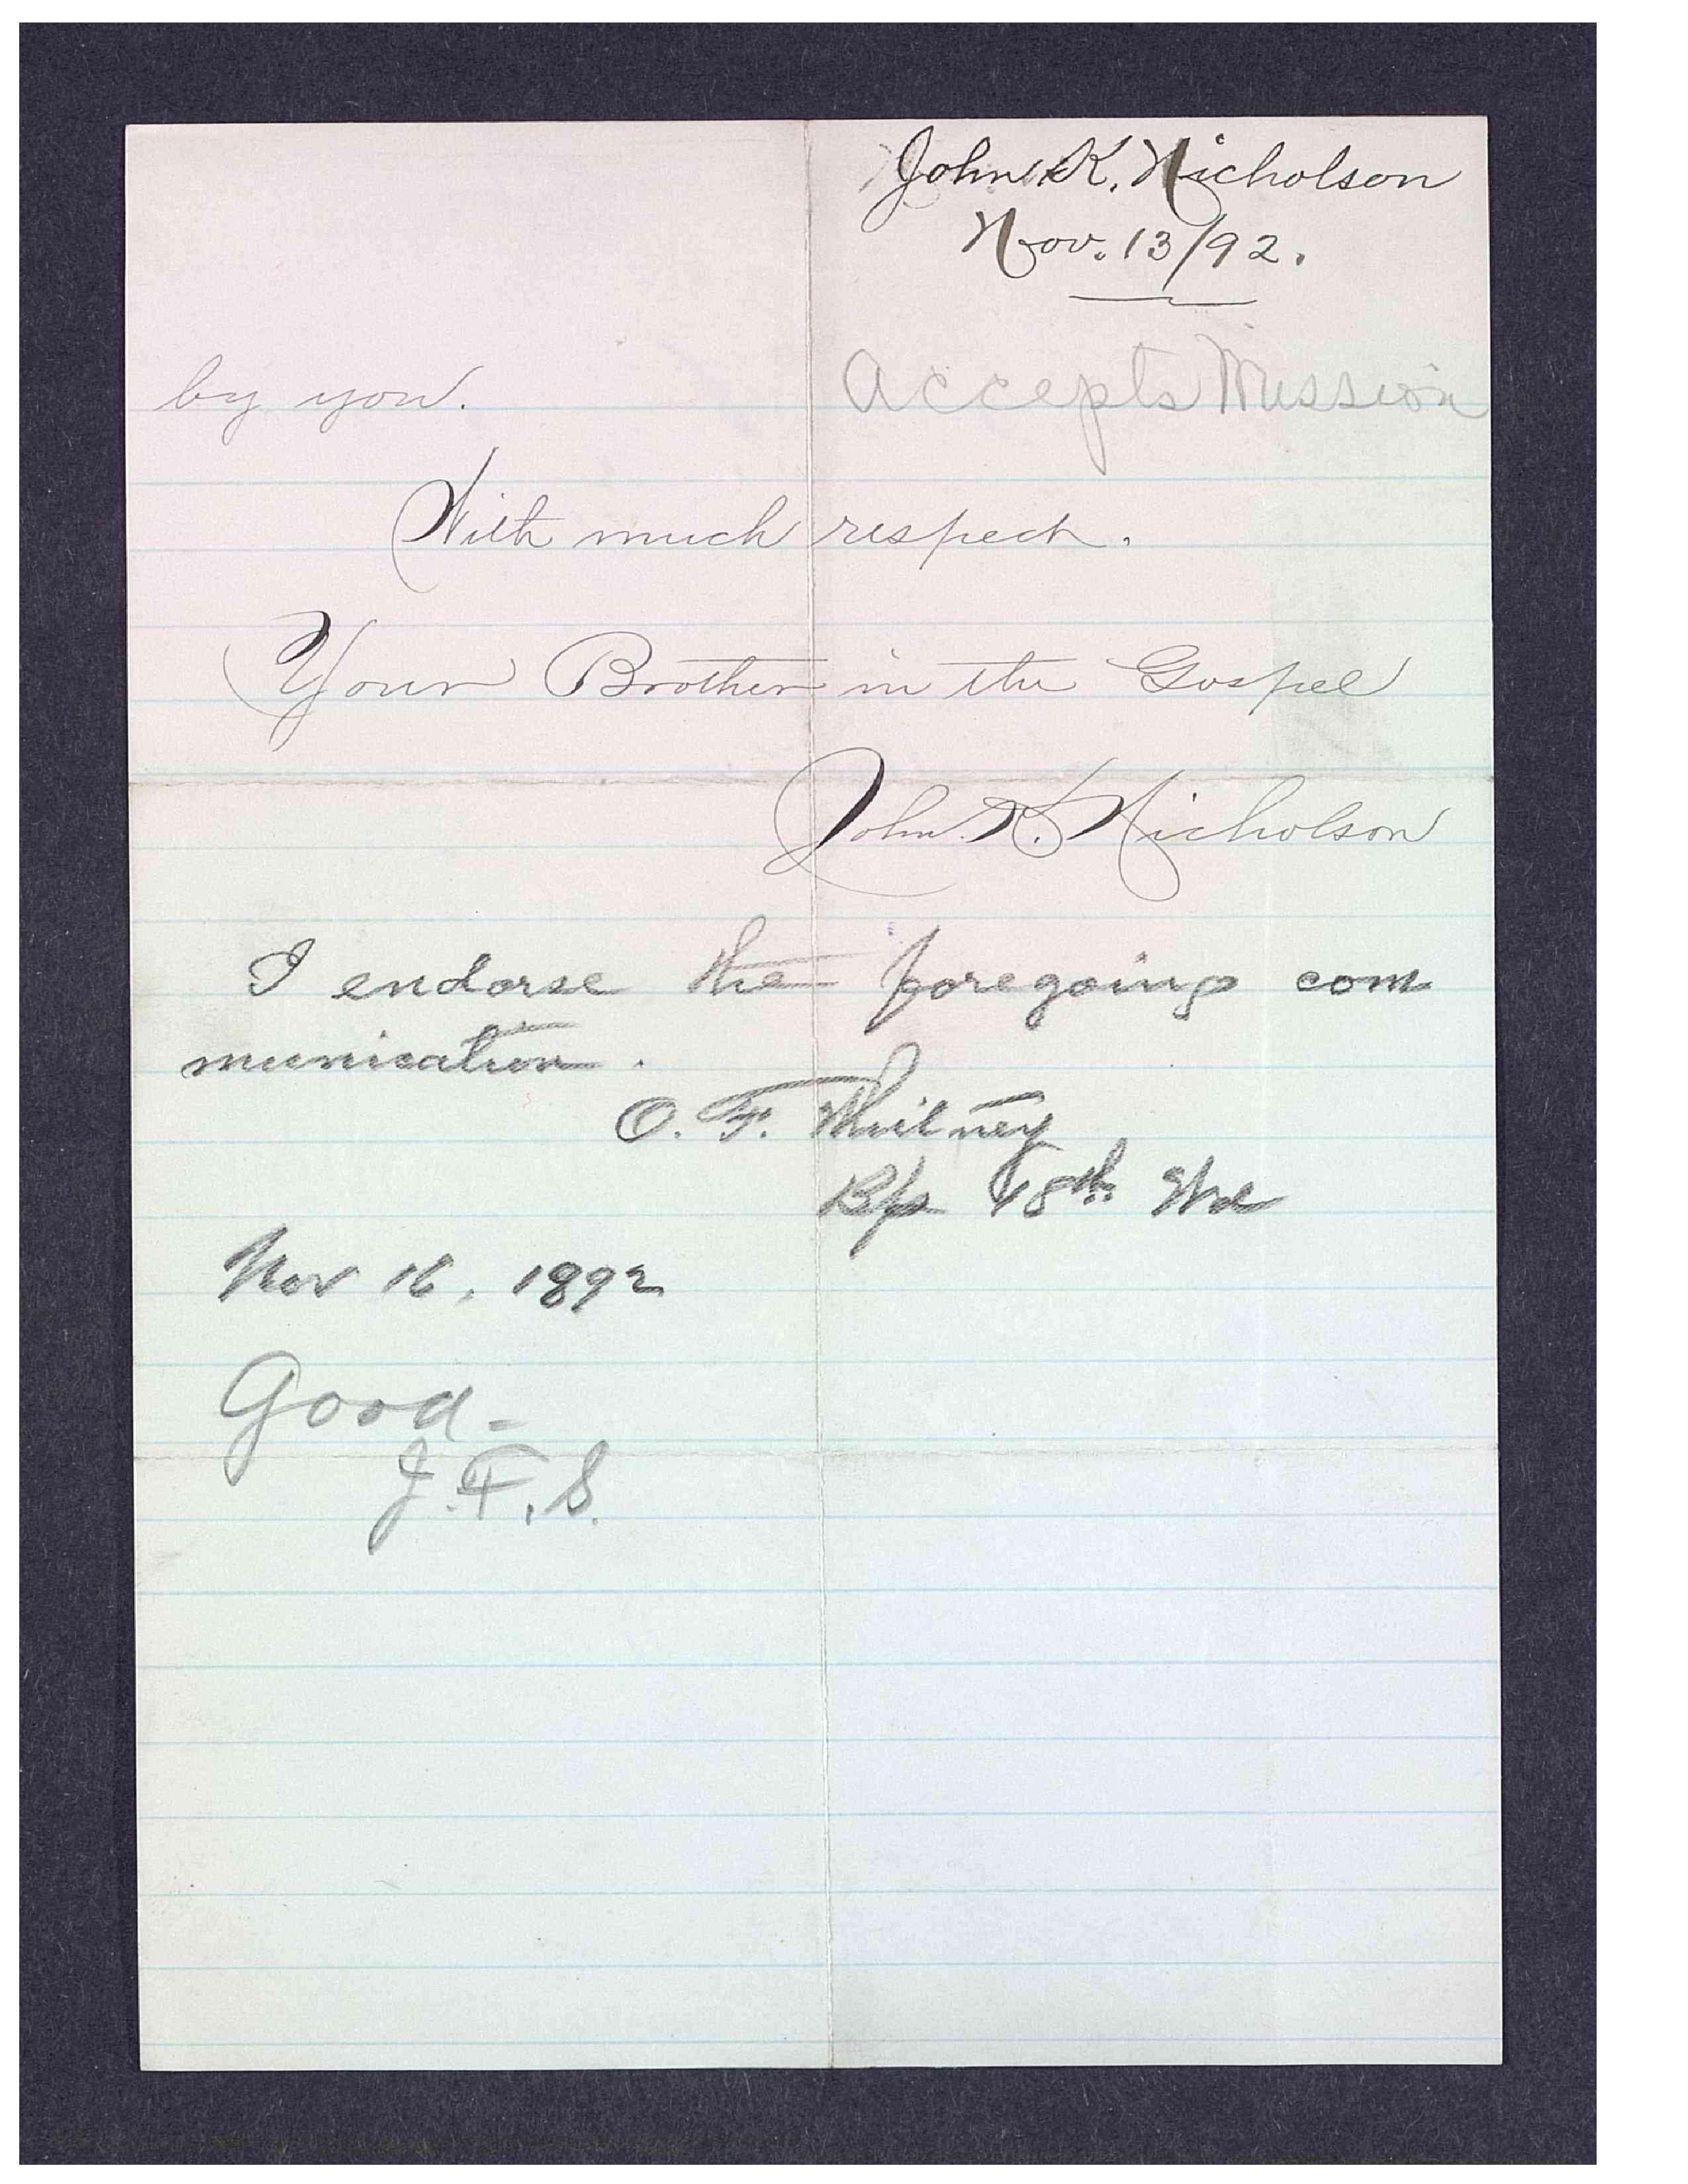 John K. Nicholson
Nov. 13/92.
Accepts Mission
by you.
With much respect.
Your Brother in the Gospel
John. K. Nicholson
I endorse the foregoing com
munication.
O. F. Whitney
Bp 18th Wd
Nov 16, 1892
Good-
J. F. S.